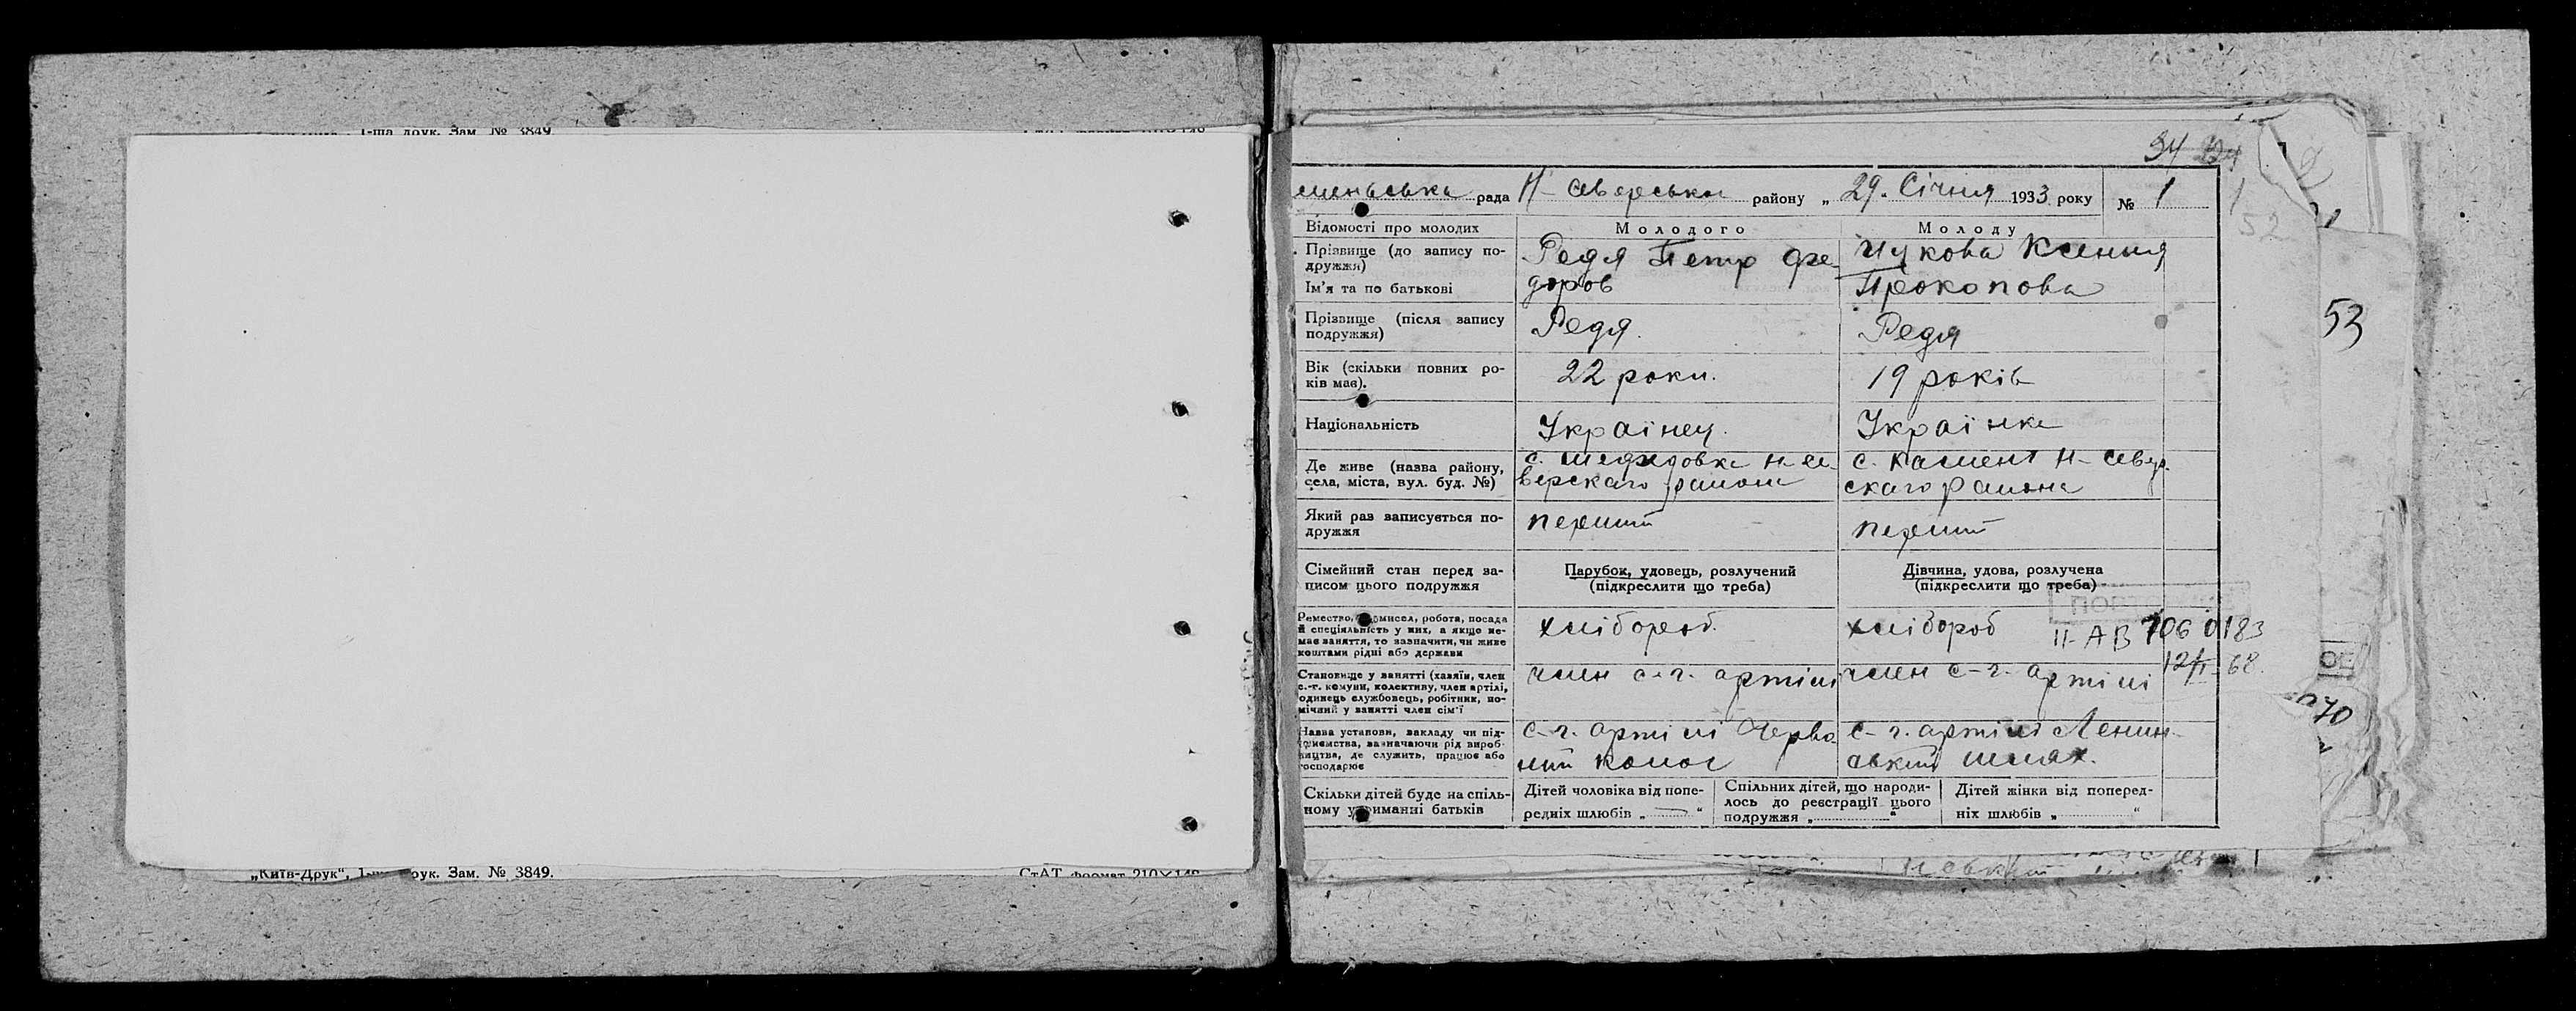 1-ша друк. Зам. № 3849
„Київ-Друк“, 1-ша друк. Зам. № 3849.
СтАТ формат 210×148
94
шеньська рада Н-Сіверська району „ 29. Січня 1933 року № 1
52
Відомості про молодих Молодого Молоду
Прізвище (до запису по-
дружжя)
Ім'я та по батькові
Редя Петр Фе
доров
Ксения
Прокопова
53
Прізвище (після запису
подружжя)
Редя. Редя
Вік (скільки повних ро-
ків має).
22 роки. 19 років
Національність Українец. Українка
Де живе (назва району,
села, міста, вул. буд. №)
верскаго района
с. Камень Н-Север
скаго Района
Який раз записується по-
дружжя
перший перший
Сімейний стан перед за-
писом цього подружжя
Парубок, удовець, розлучений
(підкреслити що треба)
Дівчина, удова, розлучена
(підкреслити що треба)
Ремество, промисел, робота, посада
й спеціяльність у них, а якщо не-
має заняття, то зазначити, чи живе
коштами рідні або держави
хлібороб. хлібороб
II-АВ 7060183
12/VI-68.
Становище у занятті (хазяїн, член
с.-г. комуни, колективу, член артілі,
одинець службовець, робітник, по-
мічний у занятті член сім'ї
член с.-г. артілі член с-г. артілі
70
Назва установи, закладу чи під-
приємства, зазначаючи рід вироб-
ництва, де служить, працює або
господарює
с-г. артілі Черво
ний колос
с-г. артілі Ленин-
ський шлях.
Скільки дітей буде на спіль-
ному утриманні батьків
Дітей чоловіка від попе-
редніх шлюбів „ — “
Спільних дітей, що народи-
лось до реєстрації цього
подружжя „ “
Дітей жінки від поперед-
ніх шлюбів „ “